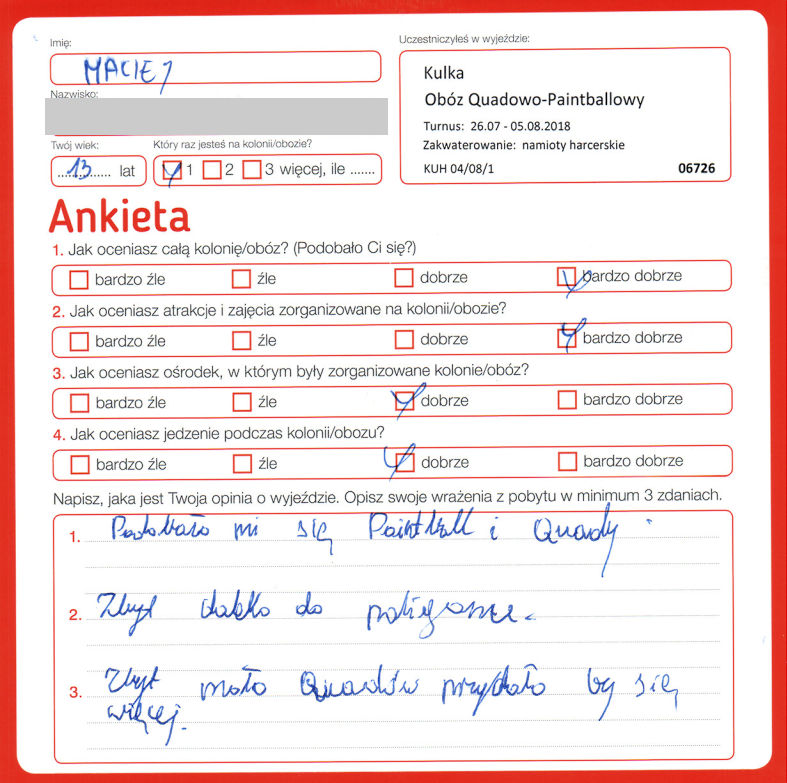 Imię:
MACIEJ
Nazwisko:
Twój wiek:
13 lat
Który raz jesteś na kolonii/obozie?
1 2 3 więcej, ile .......
Uczestniczyłeś w wyjeździe:
Kulka
Obóz Quadowo-Paintballowy
Turnus: 26.07 - 05.08.2018
Zakwaterowanie: namioty harcerskie
KUH 04/08/1 06726
Ankieta
1. Jak oceniasz całą kolonię/obóz? (Podobało Ci się?)
bardzo źle źle dobrze bardzo dobrze
2. Jak oceniasz atrakcje i zajęcia zorganizowane na kolonii/obozie?
bardzo źle źle dobrze bardzo dobrze
3. Jak oceniasz ośrodek, w którym były zorganizowane kolonie/obóz?
bardzo źle źle dobrze bardzo dobrze
4. Jak oceniasz jedzenie podczas kolonii/obozu?
bardzo źle źle dobrze bardzo dobrze
Napisz, jaka jest Twoja opinia o wyjeździe. Opisz swoje wrażenia z pobytu w minimum 3 zdaniach.
1. Podobało mi się Paintball i Quady.
2. Zbyt daleko do
3. Zbyt mało Quadów przydało by się
więcej.